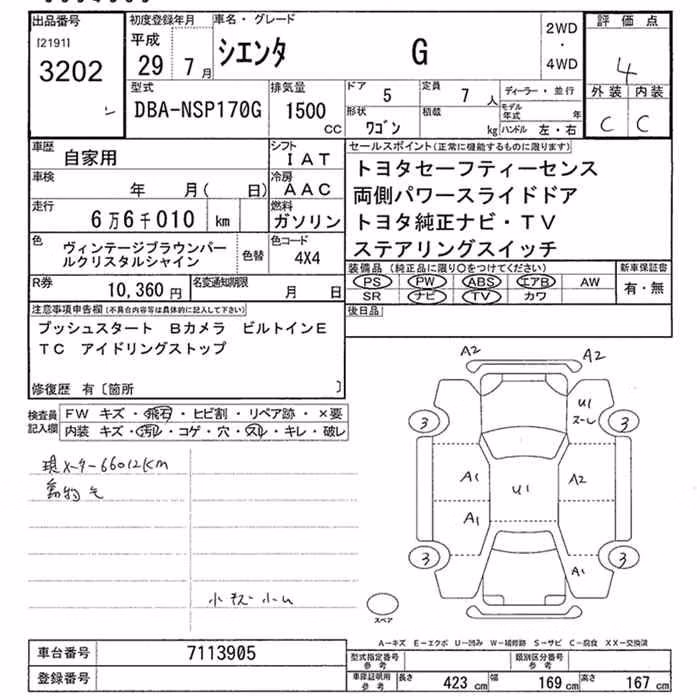 出品番号
[2191]
3202
初度登録年月
平成
29 7月
車名・グレード
シエンタ G
2WD
・
4WD
評価点
4
外装 内装
C C
型式
DBA-NSP170G
排気量
1500
CC
ドア
5
定員
7 人
形状
ワゴン
積載
kg
ディーラー・並行
モデル年式 年
ハンドル 左・右
車歴
自家用
シフト
IAT
車検
年 月( 日)
冷房
AAC
走行
6万6千010 km
燃料
ガソリン
色
ヴィンテージブラウンパー
ルクリスタルシャイン
色替
色コード
4X4
R券
10,360 円
名変通知期限
月 日
セールスポイント(正常に機能するものに限ります)
トヨタセーフティーセンス
両側パワースライドドア
トヨタ純正ナビ・TV
ステアリングスイッチ
装備品 (純正品に限り○をつけてください)
PS PW ABS エアB AW
SR ナビ TV カワ
新車保証書
有・無
後日品
注意事項申告欄(不具合内容等は具体的に記入して下さい)
プッシュスタート Bカメラ ビルトインE
TC アイドリングストップ
修復歴 有〔箇所 〕
検査員
記入欄
FW キズ・飛石・ヒビ割・リペア跡・×要
内装 キズ・汚レ・コゲ・穴・スレ・キレ・破レ
現メーター66012KM
動物毛
小キズ 小ヘコ
A2
A2
U1
スレ
3
3
A1
U1
A2
A1
3
3
A1
スペア
A-キズ E-エクボ U-凹み W-補修跡 S-サビ C-腐食 XX-交換済
車台番号
7113905
登録番号
型式指定番号
参考
類別区分番号
参考
車庫証明用
参考
長さ 423 cm 幅 169 cm 高さ 167 cm